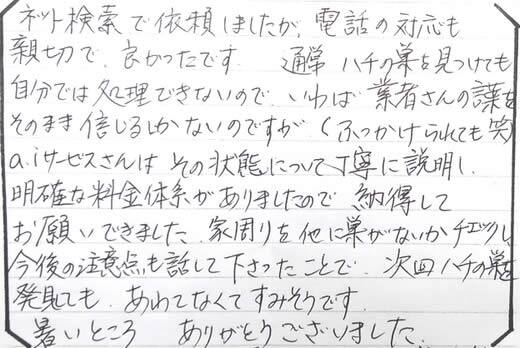 ネット検索で依頼しましたが、電話の対応も
親切で、良かったです。 通常 ハチの巣を見つけても
自分では処理できないので、いわば 業者さんの話を
そのまま信じるしかないのですが(ふっかけられても笑)
a.iサービスさんは その状態について丁寧に説明し、
明確な料金体系がありましたので 納得して
お願いできました。家周りを他に巣がないかチェックし
今後の注意点も話して下さったことで、次回ハチの巣を
発見しても、あわてなくてすみそうです。
暑いところ ありがとうございました。